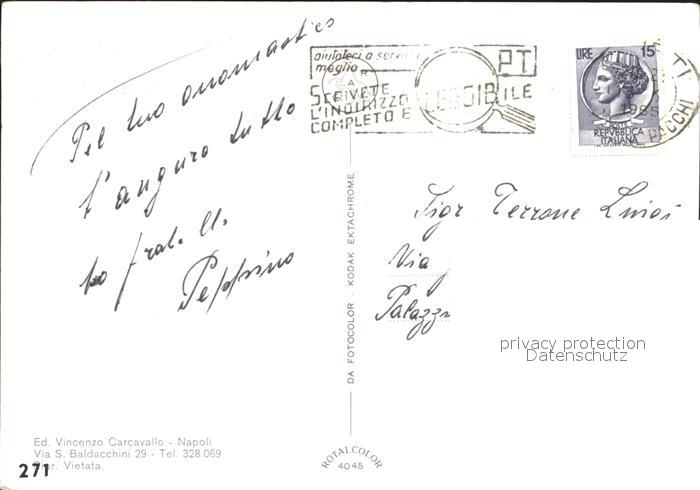 Pel tuo onomastico
t'auguro tutto
tuo fratello
Peppino
aiutateci a servirvi
meglio
PT
SCRIVETE
L'INDIRIZZO LEGGIBILE
COMPLETO E
LIRE 15
POSTE
REPVBBLICA
ITALIANA
1965
PACCHI
Sigr Terrone Luigi
Via
Palazz
privacy protection
Datenschutz
DA FOTOCOLOR - KODAK EKTACHROME
ROTALCOLOR
4045
Ed. Vincenzo Carcavallo - Napoli
Via S. Baldacchini 29 - Tel. 328.069
Ripr. Vietata
271